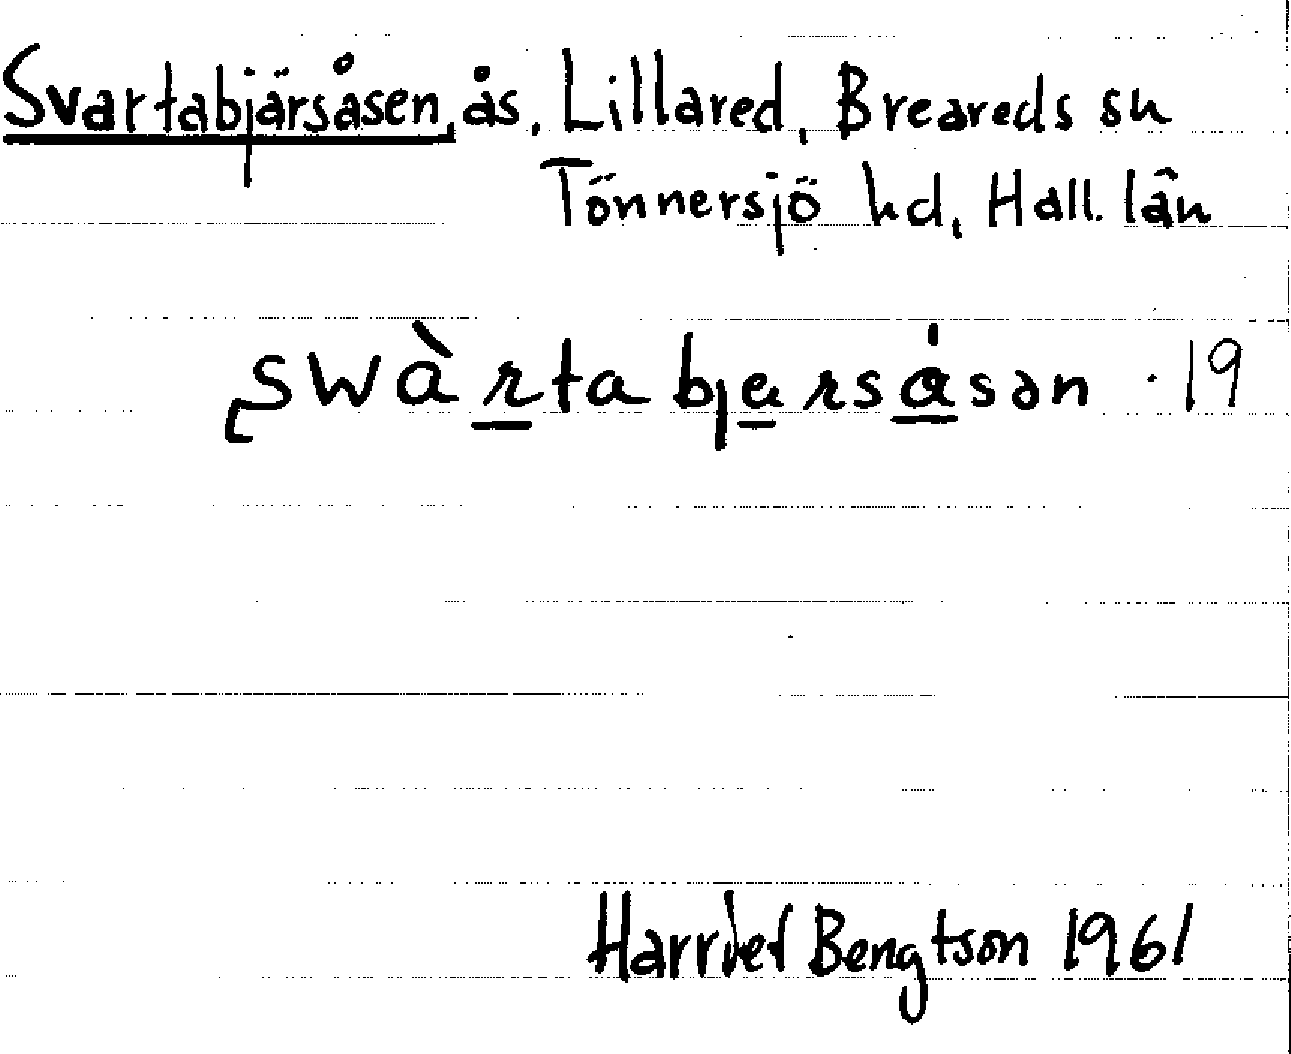 Svartabjärsåsen, ås, Lillared, Breareds sn
Tönnersjö hd, Hall. län
swàrtabjarsásən · 19
Harriet Bengtson 1961